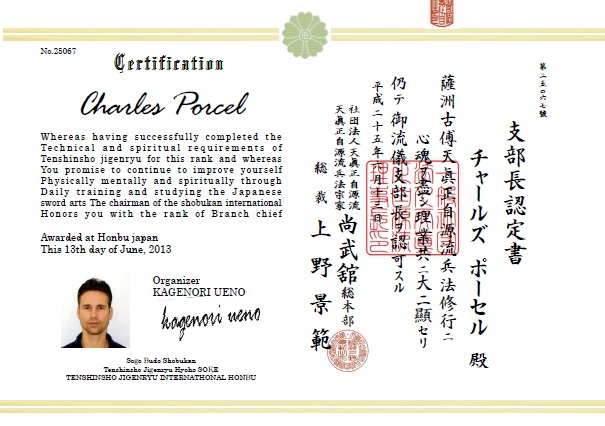 No.25067
Certification
Charles Porcel
Whereas having successfully completed the
Technical and spiritual requirements of
Tenshinsho jigenryu for this rank and whereas
You promise to continue to improve yourself
Physically mentally and spiritually through
Daily training and studying the Japanese
sword arts The chairman of the shobukan international
Honors you with the rank of Branch chief
Awarded at Honbu japan
This 13th day of June, 2013
Organizer
KAGENORI UENO
kagenori ueno
Sogo Budo Shobukan
Tenshinsho Jigenryu Hyoho SOKE
TENSHINSHO JIGENRYU INTERNATHONAL HONBU
第二五〇六七號
支部長認定書
チャールズ ポーセル 殿
薩洲古傳天眞正自源流兵法修行ニ
心魂ヲ盡シ理業共ニ大ニ顯セリ
仍テ御流儀支部長ヲ認可スル
平成二十五年六月十三日
社団法人天眞正自源流
天眞正自源流兵法宗家
尚武舘総本部
総裁 上野景範